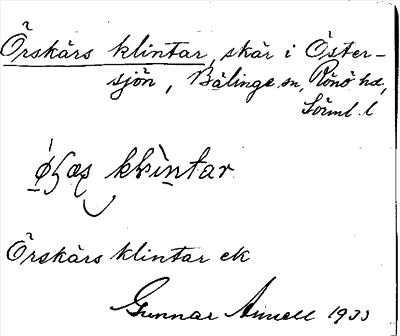 Örskärs klintar, skär i Öster-
sjön, Bälinge sn, Rönö hd,
Sörml. l
klintar
Örskärs klintar ek
Gunnar Arnell 1933